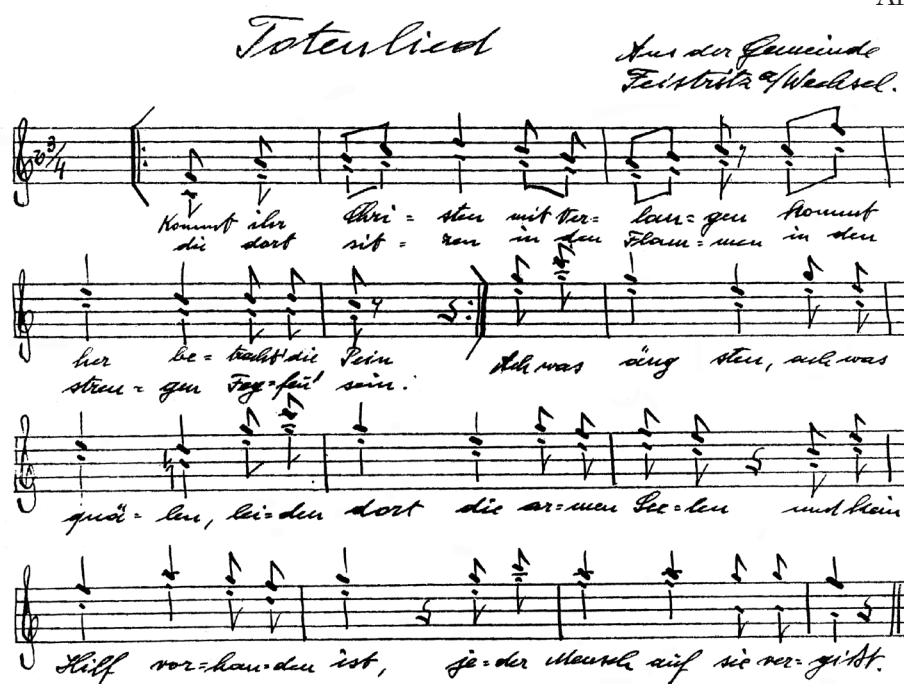 Totenlied
Aus der Gemeinde
Feistritz a/Wechsel.
3/4
Kommt ihr Chri = sten mit Ver= lan= gen kommt
die dort sit = zen in den Flam = men in den
her be = tracht' die Pein
stren = gen Feg= feu' sein.
Ach was äng sten, ach was
quä = len, lei=den dort die ar=men See=len und kein
Hilf vor=han=den ist, je=der Mensch auf sie ver= gißt.